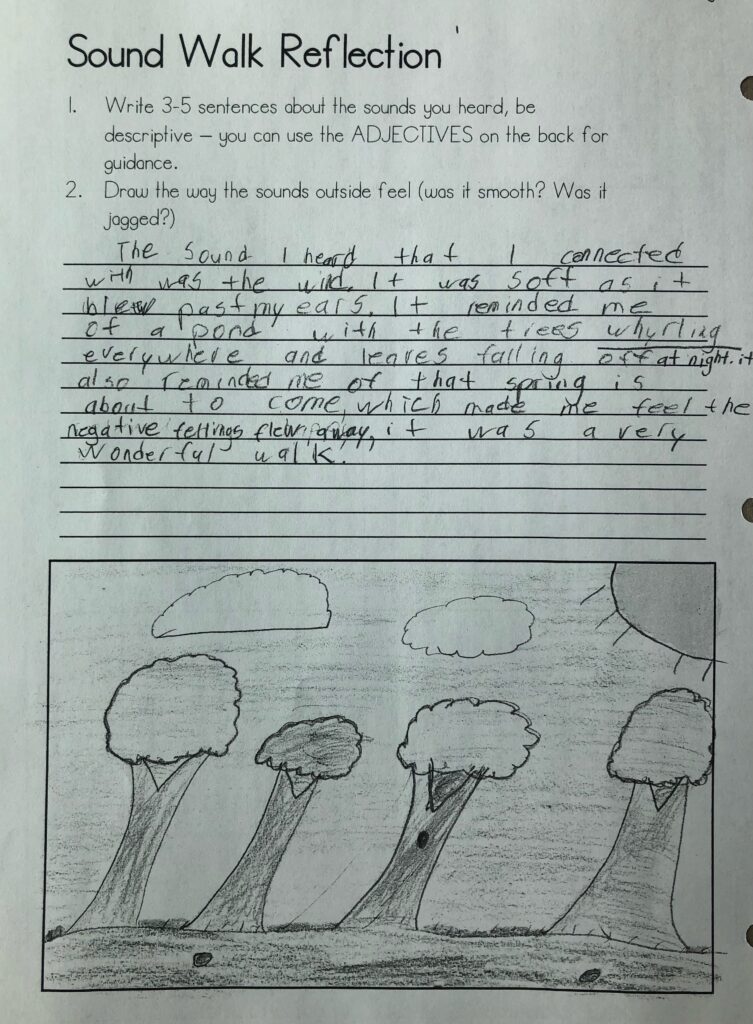 Sound Walk Reflection
1. Write 3-5 sentences about the sounds you heard, be
descriptive – you can use the ADJECTIVES on the back for
guidance.
2. Draw the way the sounds outside feel (was it smooth? Was it
jagged?)
The Sound I heard that I connected
with was the wind. It was soft as it
blew past my ears. It reminded me
of a pond with the trees whyrling
everywhere and leaves falling off at night. it
also reminded me of that spring is
about to come, which made me feel the
negative fellings flew away, it was a very
Wonderful walk.